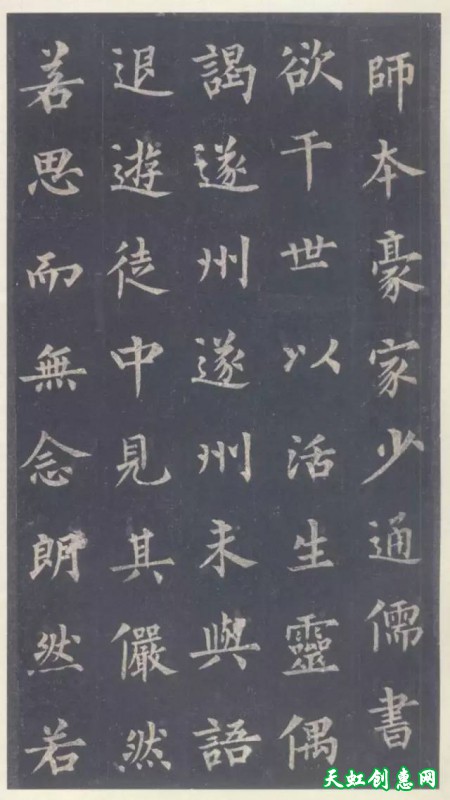 師本豪家少通儒書
欲干世以活生靈偶
謁遂州遂州未與語
退遊徒中見其儼然
若思而無念朗然若
天虹创惠网